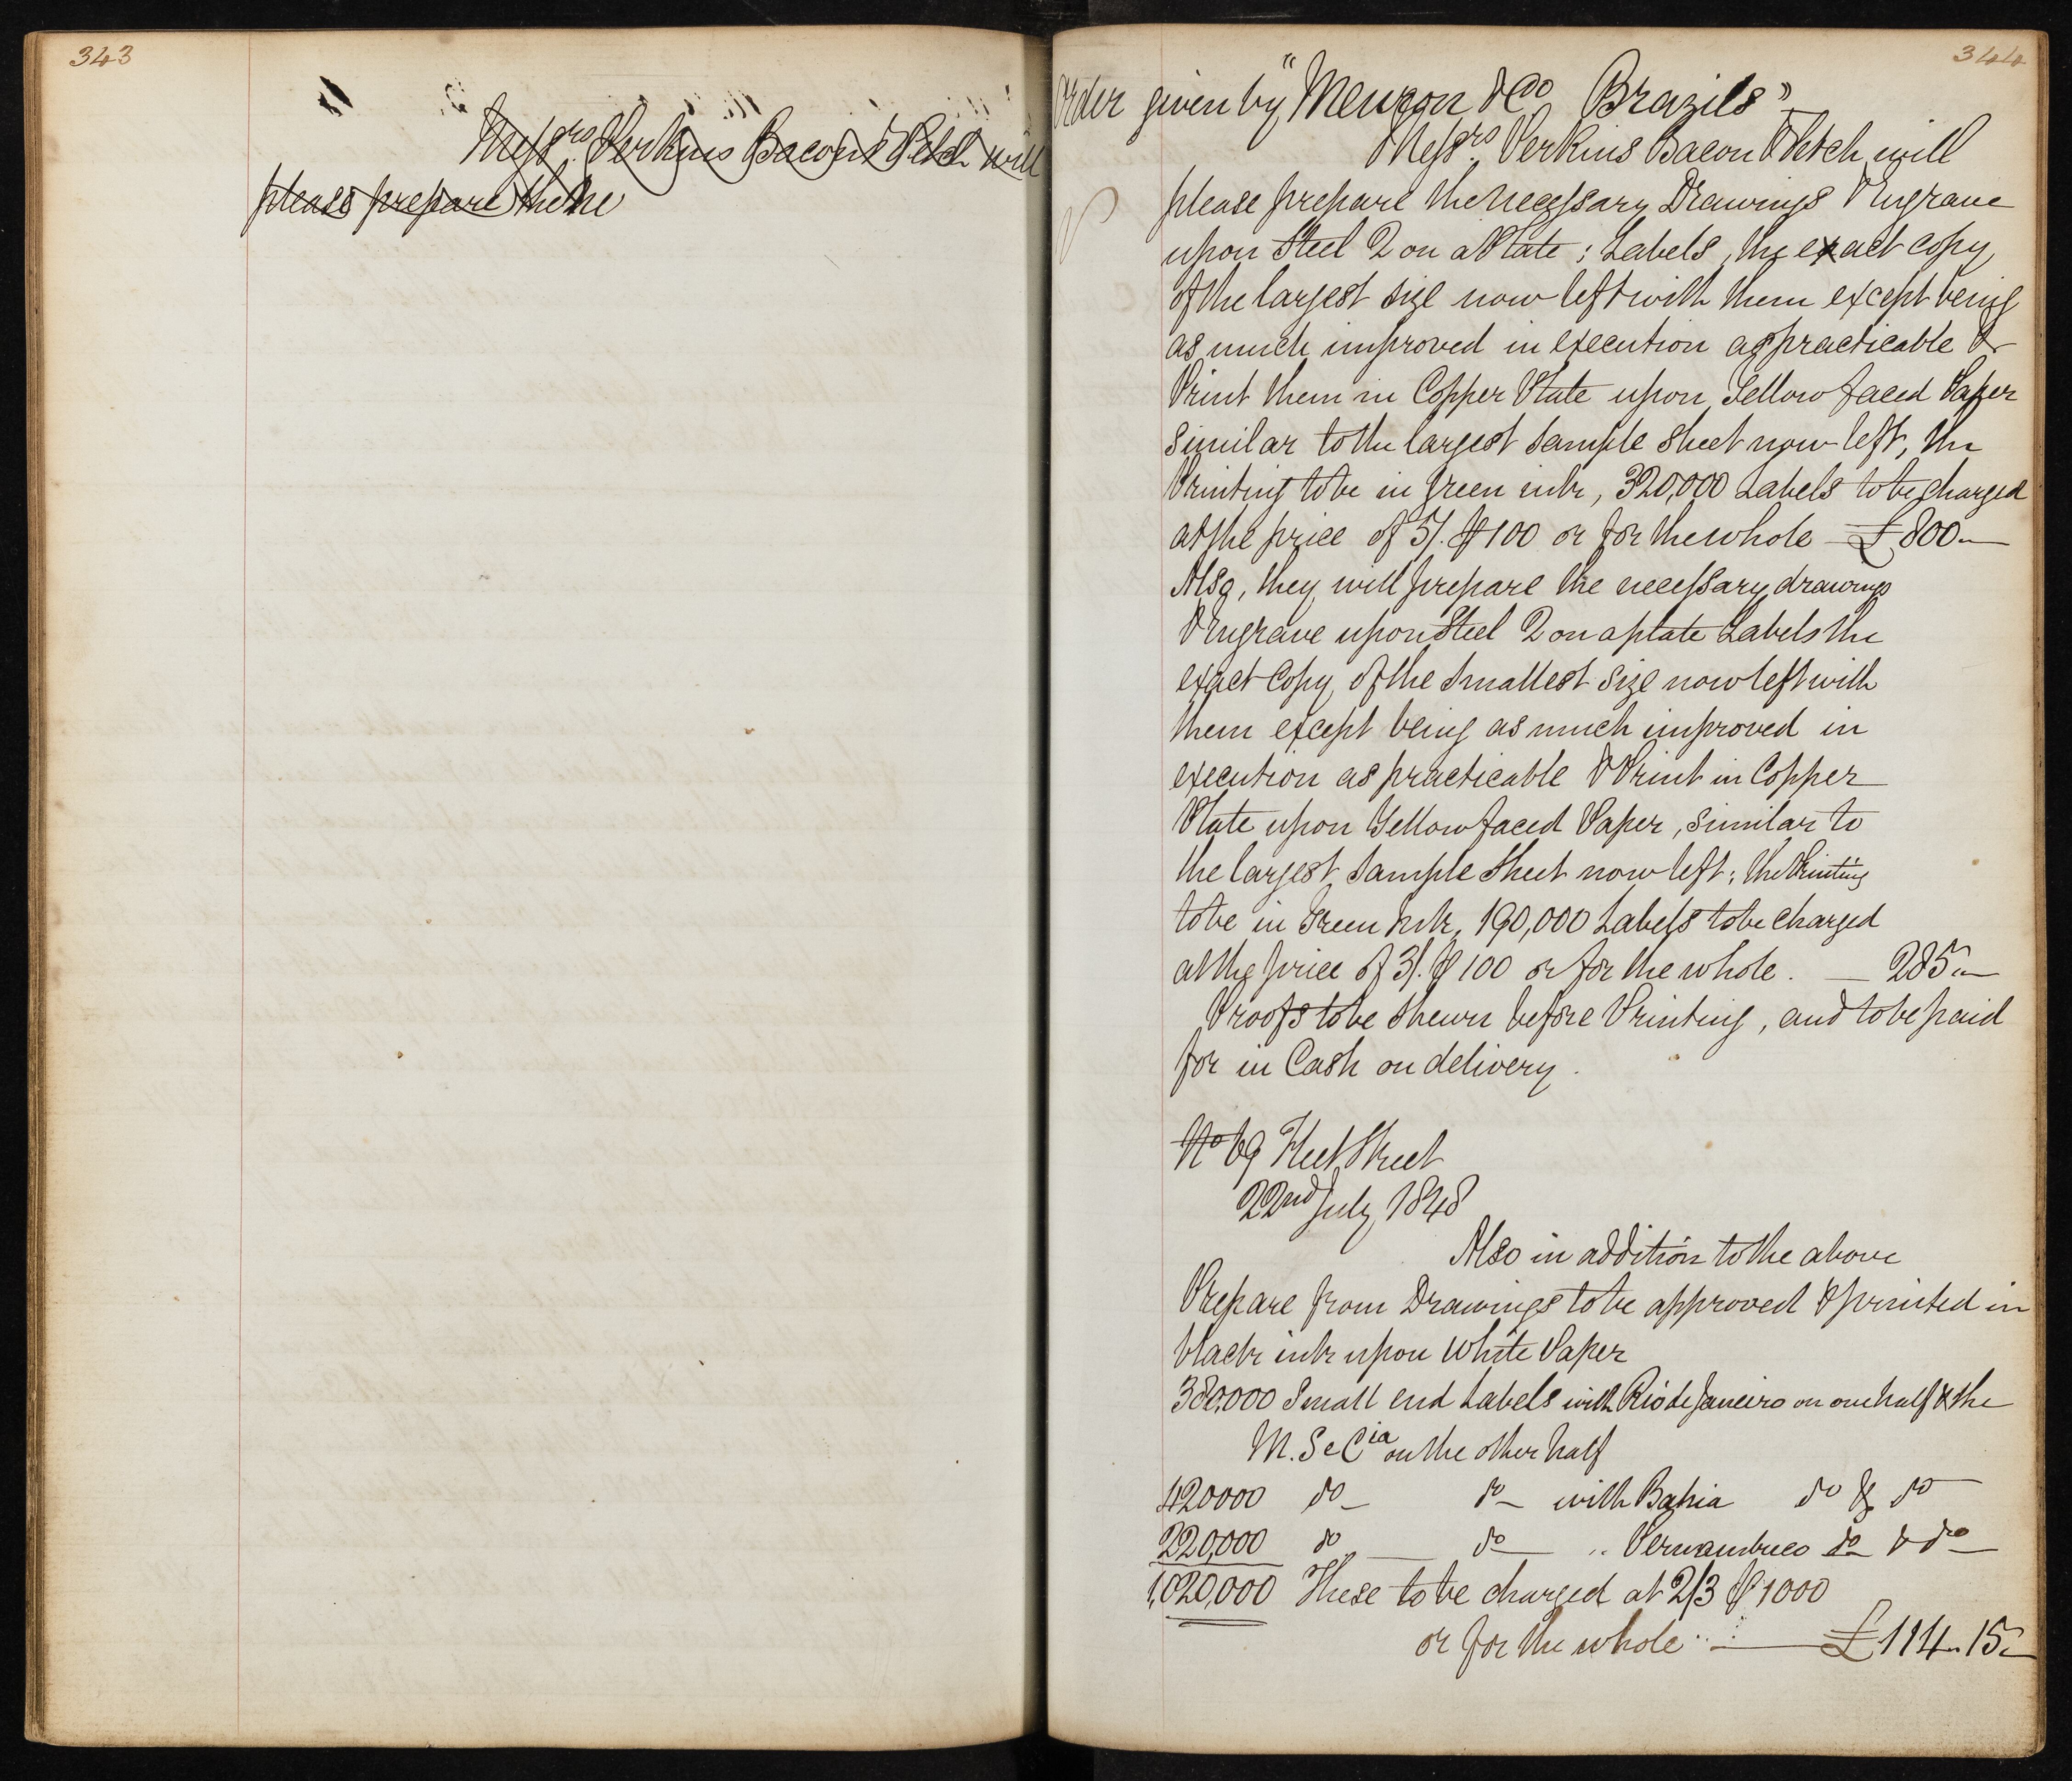 343
Messrs. Perkins Bacon & Petch will
please prepare the ne
344
Order given by "Meuron & Co Brazils"
Messrs. Perkins Bacon & Petch will
please prepare the necessary Drawings & Engrave
upon Steel 2 on a Plate; Labels, the exact copy
of the largest size now left with them except being
as much improved in execution as practicable &
Print them in Copper Plate upon Yellow faced Paper
similar to the largest sample sheet now left, the
Printing to be in green ink, 320,000 Labels to be charged
at the price of 5/. ⅌ 100 or for the whole — £800 "—
Also, they will prepare the necessary drawings
& Engrave upon Steel 2 on a plate Labels the
exact Copy of the smallest size now left with
them except being as much improved in
execution as practicable & Print in Copper
Plate upon Yellow faced Paper, similar to
the largest Sample Sheet now left; the Printing
to be in Green Ink, 190,000 Labels to be charged
at the price of 3/. ⅌ 100 or for the whole. — 285 "—
Proofs to be shewn before Printing, and to be paid
for in Cash on delivery.
No 69 Fleet Street
22nd July 1848
Also in addition to the above
Prepare from Drawings to be approved & printed in
black ink upon White Paper
380,000 Small end Labels with Rio de Janeiro on one half & the
M. S e Cia on the other half
420000 do — do — with Bahia do & do —
220,000 do — do — " Pernambuco do & do —
1,020,000 These to be charged at 2/3 ⅌ 1000
or for the whole — £114 " 15 "—